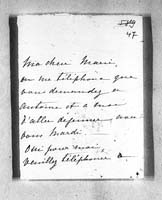 47
Ma chère Marie,
on me téléphone que
vous demandez
Antoine et à moi
d'aller déjeuner
vous Mardi
Oui pour moi,
veuillez téléphoner à